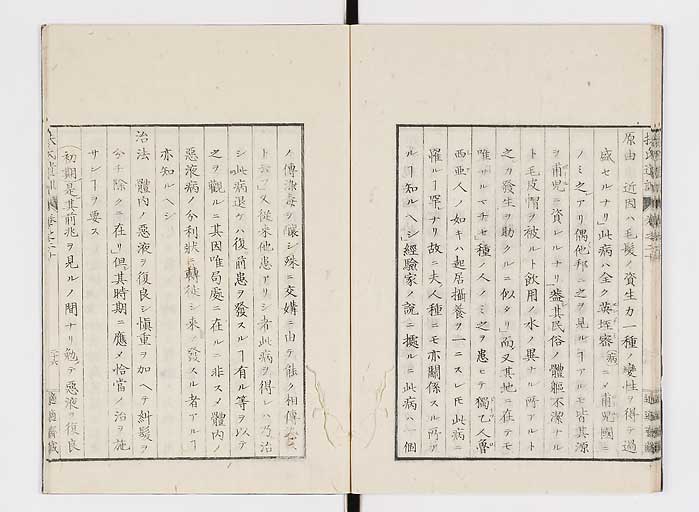 原由 近因ハ毛髪ノ資生力一種ノ變性ヲ得テ過
盛セルナリ此病ハ全ク英埀察病ニノ甫兒國ニ
ノミ之アリ偶他邦ニ之ヲ見ルヿアルモ皆其源
ヲ甫兒ニ資レルナリ蓋其民俗ノ體軀不潔ナル
ト毛皮帽ヲ被ルト飲用ノ水ノ異ナル所アルト
之カ發生ヲ助クルニ似タリ而又其地ニ在テモ
唯サルマチセ種ノ人ノミ之ヲ患ヒテ獨乙人魯
西亜人ノ如キハ起居攝養ヲ一ニスレ𪜈此病ニ
羅ルヿ罕ナリ故ニ夫人種ニモ亦關係スル所アル
ルヿ知ルヘシ經驗家ノ說ニ據ルニ此病ハ一個
ノ傳染毒ヲ釀シ殊ニ交媾ニ由テ能ク相傳染
ト云フ又從来他患アリシ者此病ヲ得シハ乃治
シ此病退ケハ復前患ヲ發スルヿ有ル等ヲ以テ
之ヲ觀ルニ其因唯局處ニ在ルニ非スメ體内ノ
惡液病ノ分利狀ニ轉徙シ来ノ發スル者アルヿ
亦知ルヘシ
治法 體内ノ惡液ヲ復良シ愼重ヲ加ヘテ糾髮ヲ
分チ除クニ在リ但其時期ニ應メ恰當ノ治ヲ施
サンヿヲ要ス
初期是其前兆ヲ見ルノ間ナリ勉テ惡液ヲ復良
二十六